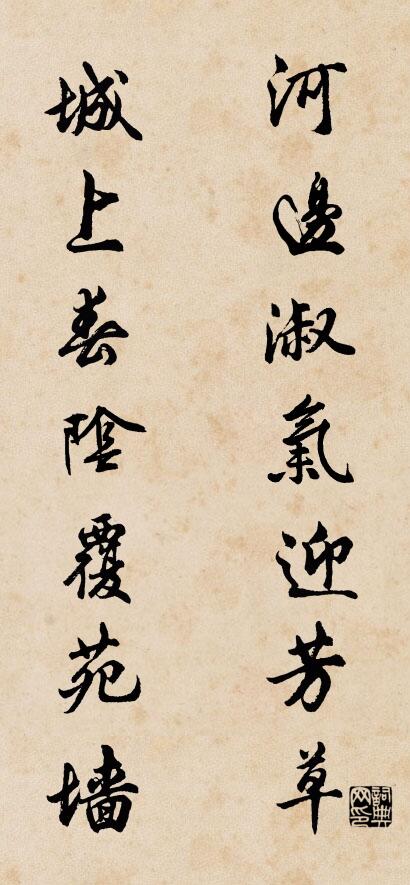 河邊淑氣迎芳草
城上春陰覆苑墙
詞典网印